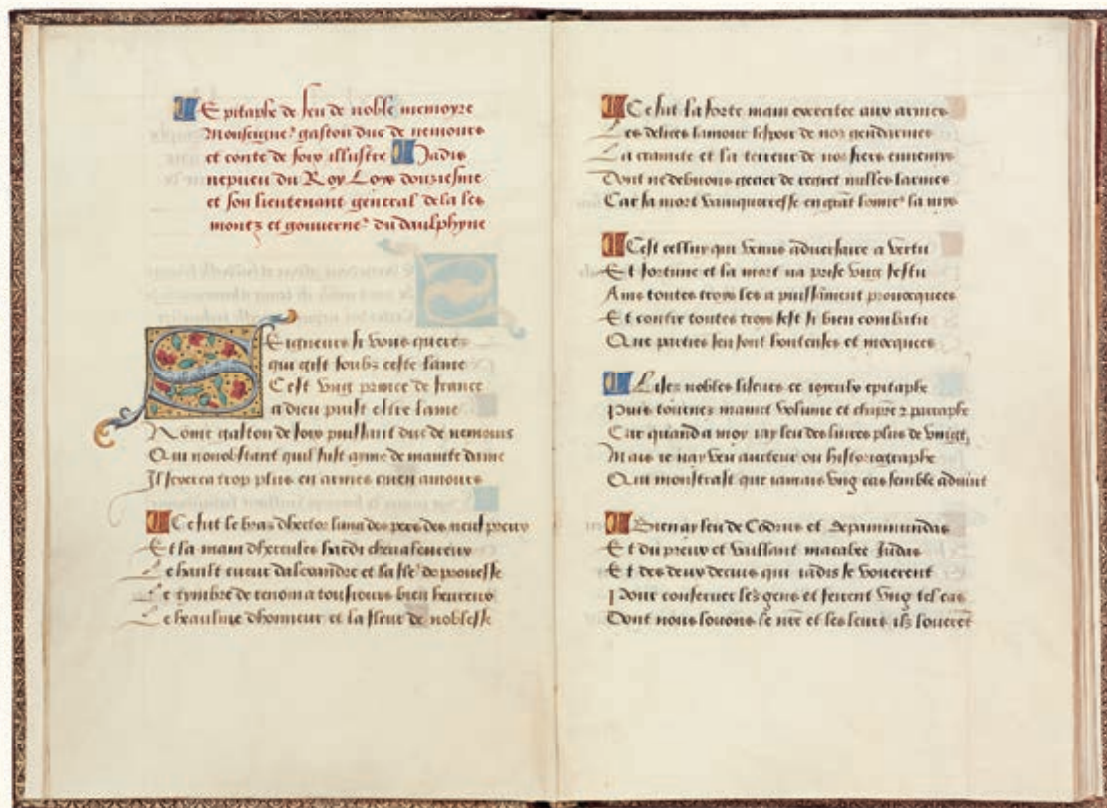 LEpitaphe de feu de noble memoyre
Monseigneᵣ gaston duc de nemours
et conte de foix illustre Iadis
nepueu du Roy Loys douziesme
et son lieutenant general dela les
montz et gouverneᵣ du daulphyne
SEigneurs se vous queres
qui gist soubz ceste lame
Cest vng prince de france
a dieu puist estre lame
Nome gaston de foix puissant duc de nemours
Qui nonobstant quil fust ayme de mainte dame
Il fevera trop plus en armes quen amours
Ce fut le bras dhector lung des pers des neuf preux
Et la main dhercules hardi cheualeureux
Le hault cueur dalexandre et la fleᵣ de prouesse
Le tymbre de renom a tousiours bien heureux
Le heaulme dhonneur et la fleur de noblesse
Ce fut la forte main exercitee aux armes
Les delices lamour lespoir de noz gendarmes
La cramite et la terreur de nos fiers ennemys
Dont ne debuons gecter de regret milles larmes
Car sa mort vainqueresse en grāt honneᵣ la mys
Cest celluy qui venus aduersaire a vertu
Et fortune et la mort na prise vng festu
Ains toutes troys les a puissament prouocquees
Et contre toutes troys sest si bien combatu
Que parties sen sont honteuses et mocquees
Lises nobles liseurs ce ioyeulx epitaphe
Puis tournes maint volume et chapᵣᵉ z paraphe
Car quand a moy iay leu des liures plus de vingt
Mais ie nay veu aucteur ou historiographe
Qui monstrast que iamais vng cas semble aduint
Bien ay leu de Codrus et depaminundas
Et du preux et vaillant macabee Iudas
Et des deux decius qui iadis se vouerent
Pour conseruer les gens et feirent vng tel cas
Dont nous louons le nr̄e et les leurs ilz louerēt